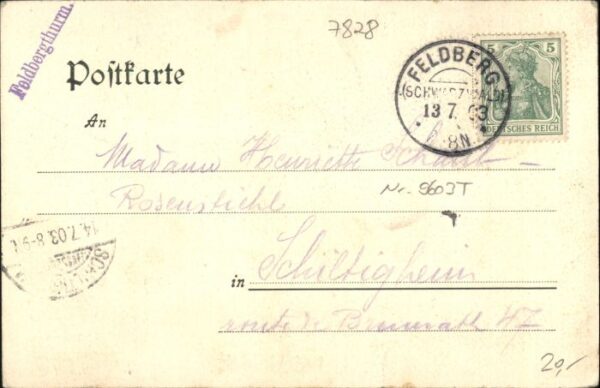 Feldbergthurm.
7828
Postkarte
FELDBERG
(SCHWARZWALD)
13 7 03
8N
5 5
DEUTSCHES REICH
An
Madame Henriette
Nr. 5603T
Rosenstiehl
14.7.03. 8-9
in Schiltigheim
route de Brumath 47
20,-